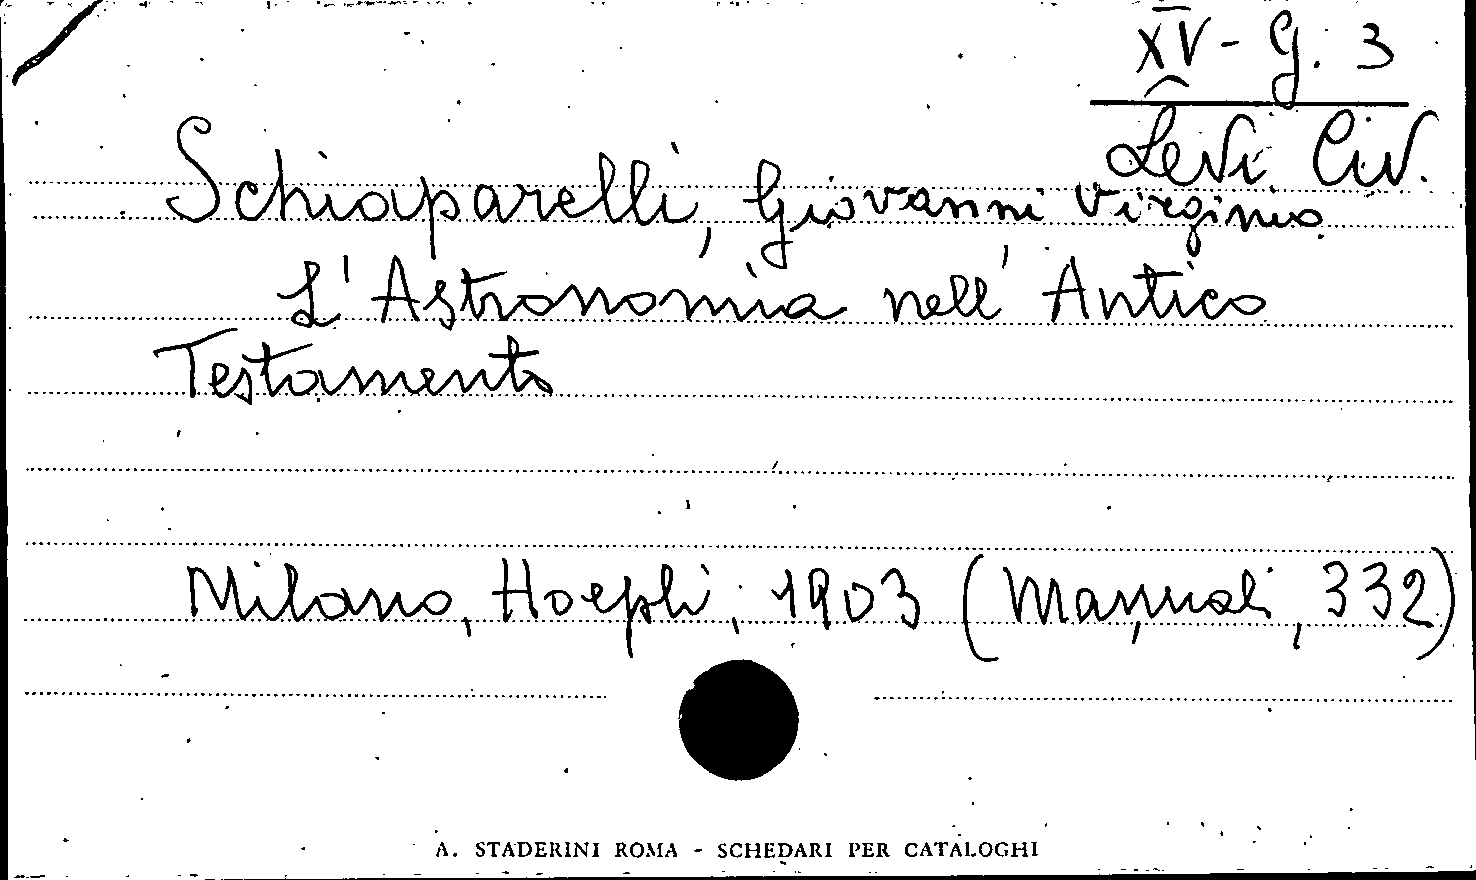 XV - G. 3
Levi Civ.
Schiaparelli, Giovanni Virginio.
L'Astronomia nell'Antico
Testamento
Milano, Hoepli, 1903 (Manuali, 332)
A. STADERINI ROMA - SCHEDARI PER CATALOGHI